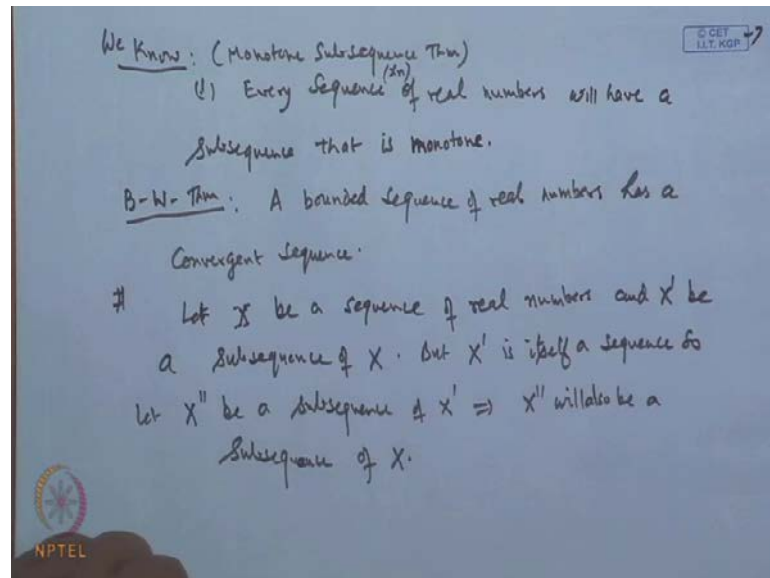 We Know: (Monotone Subsequence Thm)
© CET
I.I.T. KGP
(1) Every sequence (xn) of real numbers will have a
subsequence that is monotone.
B-W-Thm: A bounded sequence of real numbers has a
Convergent sequence.
# Let X be a sequence of real numbers and X' be
a subsequence of X. But X' is itself a sequence so
let X'' be a subsequence of X' ⇒ X'' will also be a
subsequence of X.
NPTEL